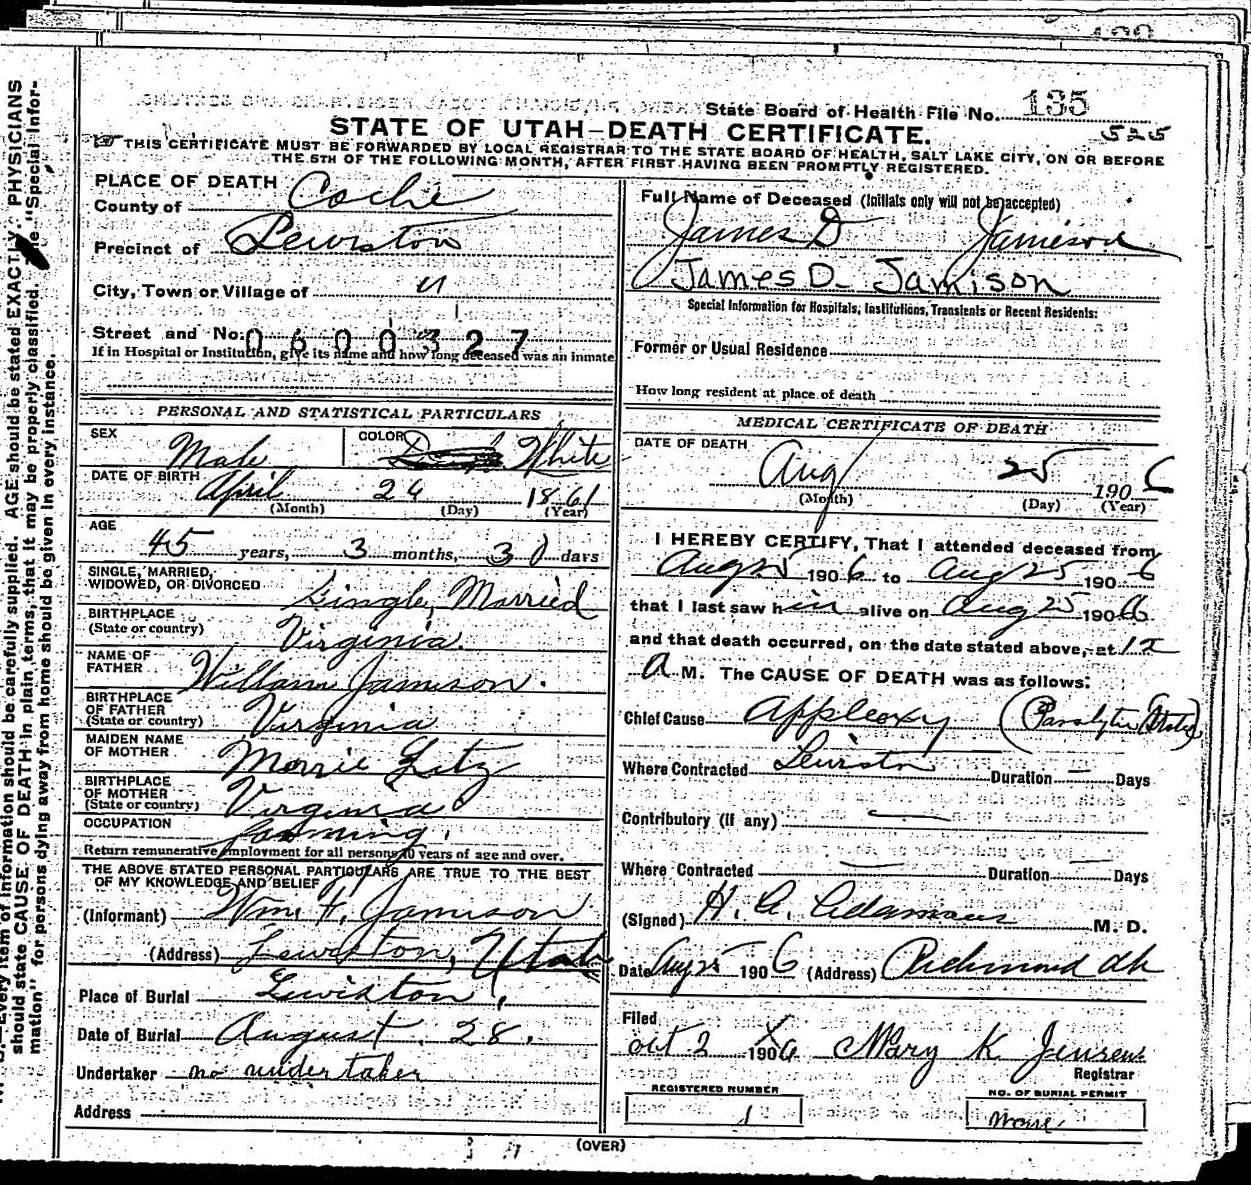 State Board of Health File No. 135
STATE OF UTAH—DEATH CERTIFICATE.
525
THIS CERTIFICATE MUST BE FORWARDED BY LOCAL REGISTRAR TO THE STATE BOARD OF HEALTH, SALT LAKE CITY, ON OR BEFORE
THE 5TH OF THE FOLLOWING MONTH, AFTER FIRST HAVING BEEN PROMPTLY REGISTERED.
PLACE OF DEATH
County of Cache
Precinct of Lewiston
City, Town or Village of "
Street and No. 0600327
If in Hospital or Institution, give its name and how long deceased was an inmate
PERSONAL AND STATISTICAL PARTICULARS
SEX Male COLOR White
DATE OF BIRTH April 26 1861
(Month) (Day) (Year)
AGE 45 years, 3 months, 30 days
SINGLE, MARRIED,
WIDOWED, OR DIVORCED Single, Married
BIRTHPLACE
(State or country) Virginia.
NAME OF
FATHER William Jamison.
BIRTHPLACE
OF FATHER
(State or country) Virginia
MAIDEN NAME
OF MOTHER Morrie Litz
BIRTHPLACE
OF MOTHER
(State or country) Virginia
OCCUPATION farming.
Return remunerative employment for all persons 10 years of age and over.
THE ABOVE STATED PERSONAL PARTICULARS ARE TRUE TO THE BEST
OF MY KNOWLEDGE AND BELIEF
(Informant) Wm. F. Jamison
(Address) Lewiston, Utah
Place of Burial Lewiston,
Date of Burial August 28.
Undertaker no undertaker
Address
Full Name of Deceased (Initials only will not be accepted)
James D Jamieson
James D. Jamison
Special Information for Hospitals, Institutions, Transients or Recent Residents:
Former or Usual Residence
How long resident at place of death
MEDICAL CERTIFICATE OF DEATH
DATE OF DEATH
Aug 25 1906
(Month) (Day) (Year)
I HEREBY CERTIFY, That I attended deceased from
Aug 25 1906 to Aug 25 1906
that I last saw him alive on Aug 25 1906
and that death occurred, on the date stated above, at 12
A M. The CAUSE OF DEATH was as follows:
Chief Cause Appleoxy (Paralytic
Where Contracted Lewiston Duration — Days
Contributory (if any) —
Where Contracted — Duration — Days
(Signed) H. A. Adamson M. D.
Date Aug 25 1906 (Address) Richmond
Filed
Oct 2 1906 Mary K Jensen
Registrar
REGISTERED NUMBER
1
NO. OF BURIAL PERMIT
None
(OVER)
Every item of information should be carefully supplied. AGE should be stated EXACTLY. PHYSICIANS
should state CAUSE OF DEATH in plain terms, that it may be properly classified. The "Special Infor-
mation" for persons dying away from home should be given in every instance.